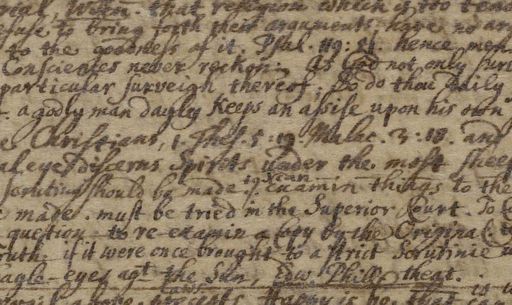 that religion which is too tend
refuse to bring forth their arguments have no
to the goodness of it. Psal. hence men
Consciences never reckon. as God not only surv
particular surveigh thereof, So do thou daily
a godly man dayley keeps an assise upon his own
Christians, 1. Thes. 5: Malac. 3: 18. and
al eye discerns Spirits under the most sheep
scrutiny should be made, examin things to the
e made. must be tried in the Superior Court. To
question to re-examin a Copy by the Original
ruth: if it were once brought to a strict Scrutinie
Eagle-eyes agt the Sun
precepts Happy is